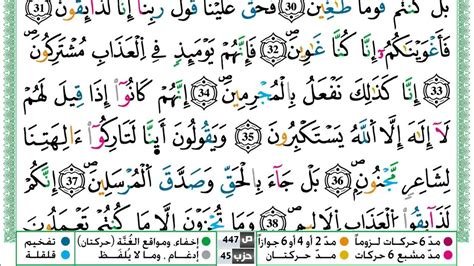 بَلْ كُنتُمْ قَوْمًا طَٰغِينَ ۝30 فَحَقَّ عَلَيْنَا قَوْلُ رَبِّنَآ إِنَّا لَذَآئِقُونَ ۝31
فَأَغْوَيْنَٰكُمْ إِنَّا كُنَّا غَٰوِينَ ۝32 فَإِنَّهُمْ يَوْمَئِذٍ فِى ٱلْعَذَابِ مُشْتَرِكُونَ
۝33 إِنَّا كَذَٰلِكَ نَفْعَلُ بِٱلْمُجْرِمِينَ ۝34 إِنَّهُمْ كَانُوٓا۟ إِذَا قِيلَ لَهُمْ
لَآ إِلَٰهَ إِلَّا ٱللَّهُ يَسْتَكْبِرُونَ ۝35 وَيَقُولُونَ أَئِنَّا لَتَارِكُوٓا۟ ءَالِهَتِنَا
لِشَاعِرٍ مَّجْنُونٍۭ ۝36 بَلْ جَآءَ بِٱلْحَقِّ وَصَدَّقَ ٱلْمُرْسَلِينَ ۝37 إِنَّكُمْ
لَذَآئِقُوا۟ ٱلْعَذَابِ ٱلْأَلِيمِ ۝38 وَمَا تُجْزَوْنَ إِلَّا مَا كُنتُمْ تَعْمَلُونَ
مدّ 6 حركات لزوماً مدّ 2 أو 4 أو 6 جوازاً ص 447 إخفاء، ومواقع الغُنَّة (حركتان) تفخيم
مدّ مشبع 6 حركات مدّ حركتان حزب 45 إدغام، وما لا يُلفَظ قلقلة